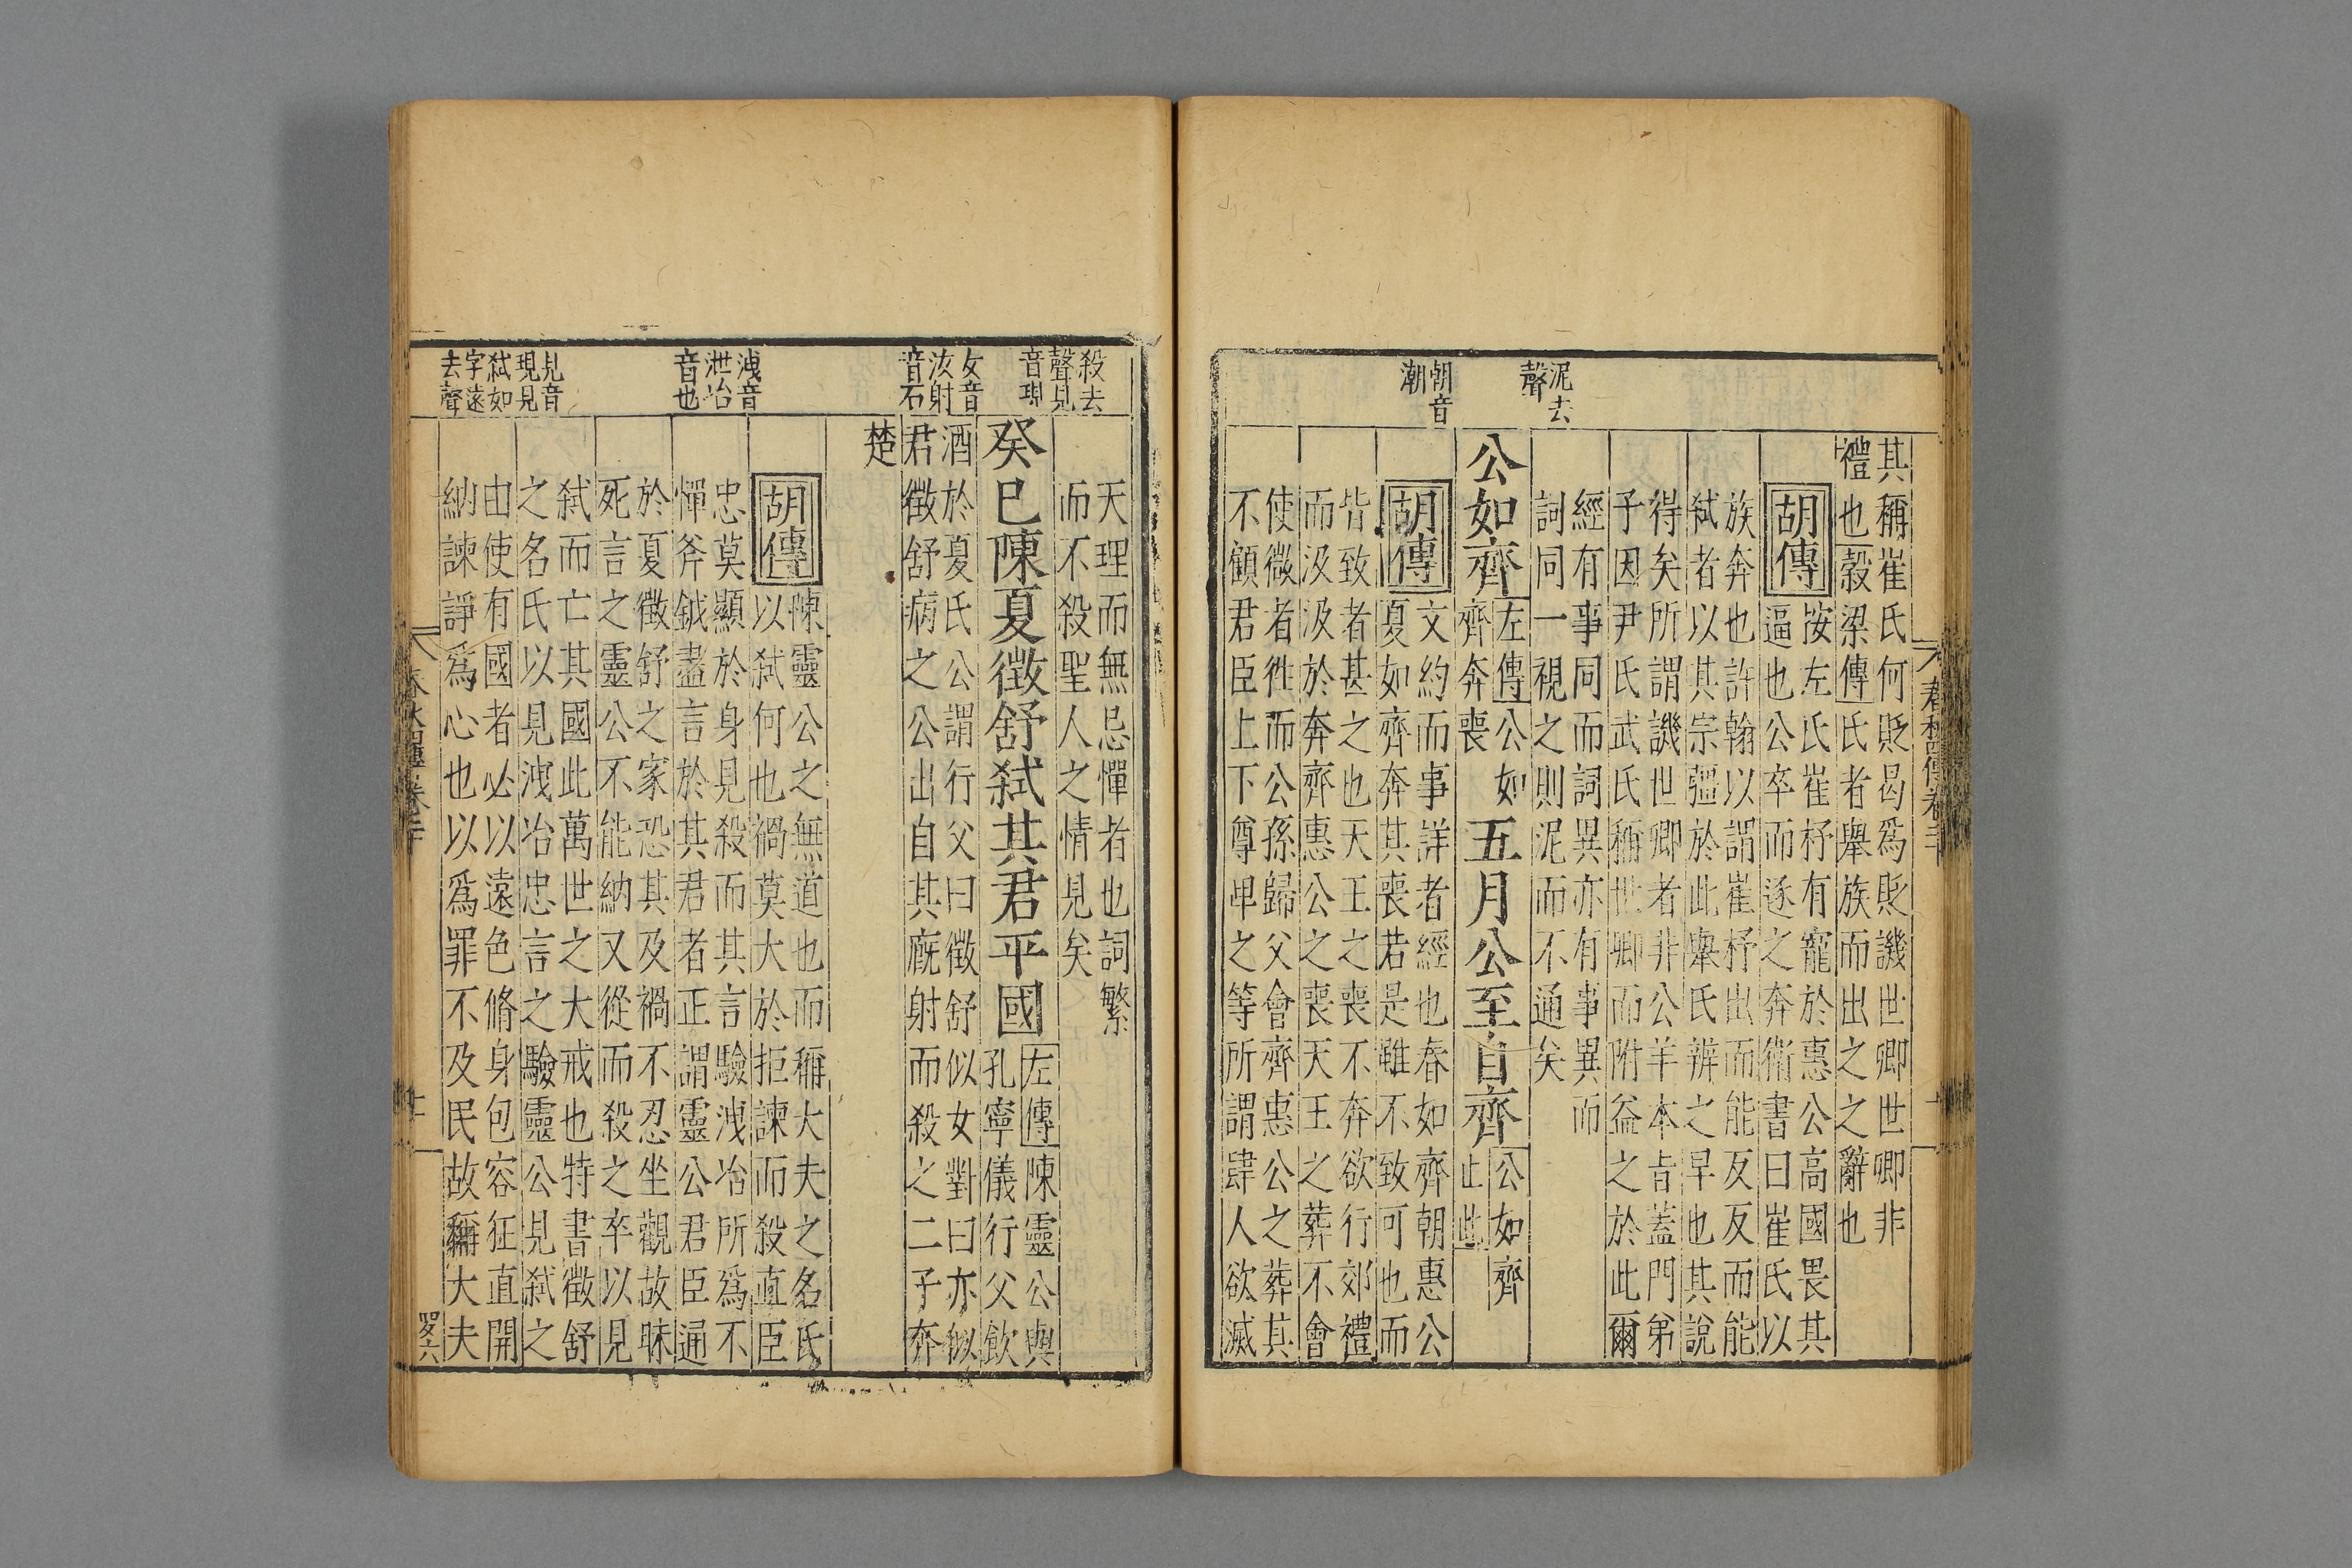 泥去
聲
朝音
潮
其稱崔氏何貶曷爲貶譏世卿世卿非
禮也穀梁傳氏者舉族而出之之辭也
胡傳
按左氏崔杼有寵於惠公高國畏其
逼也公卒而逐之奔衛書曰崔氏以
族奔也許翰以謂崔杼出而能反反而能
弑者以其宗彊於此舉氏辨之早也其說
得矣所謂譏世卿者非公羊本旨蓋門弟
子因尹氏武氏稱世卿而附益之於此爾
經有事同而詞異亦有事異而
詞同一視之則泥而不通矣
公如齊
左傳公如
齊奔喪
五月公至自齊
公如齊
止此
胡傳
文約而事詳者經也春如齊朝惠公
夏如齊奔其喪若是雖不致可也而
皆致者甚之也天王之喪不奔欲行郊禮
而汲汲於奔齊惠公之喪天王之葬不會
使微者徃而公孫歸父會齊惠公之葬其
不顧君臣上下尊卑之等所謂肆人欲滅
春秋四傳卷二十
殺去
聲見
音現
女音
汝射
音石
洩音
泄冶
音也
見音
現見
弑如
字遠
去聲
天理而無忌憚者也詞繁
而不殺聖人之情見矣
癸巳陳夏徵舒弑其君平國
左傳陳靈公與
孔寧儀行父飲
酒於夏氏公謂行父曰徵舒似女對曰亦似
君徵舒病之公出自其廐射而殺之二子奔
楚
胡傳
陳靈公之無道也而稱大夫之名氏
以弑何也禍莫大於拒諫而殺直臣
忠莫顯於身見殺而其言驗洩冶所爲不
憚斧鉞盡言於其君者正謂靈公君臣通
於夏徵舒之家恐其及禍不忍坐觀故昧
死言之靈公不能納又從而殺之卒以見
弑而亡其國此萬世之大戒也特書徵舒
之名氏以見洩冶忠言之驗靈公見弑之
由使有國者必以遠色脩身包容狂直開
納諫諍爲心也以爲罪不及民故稱大夫